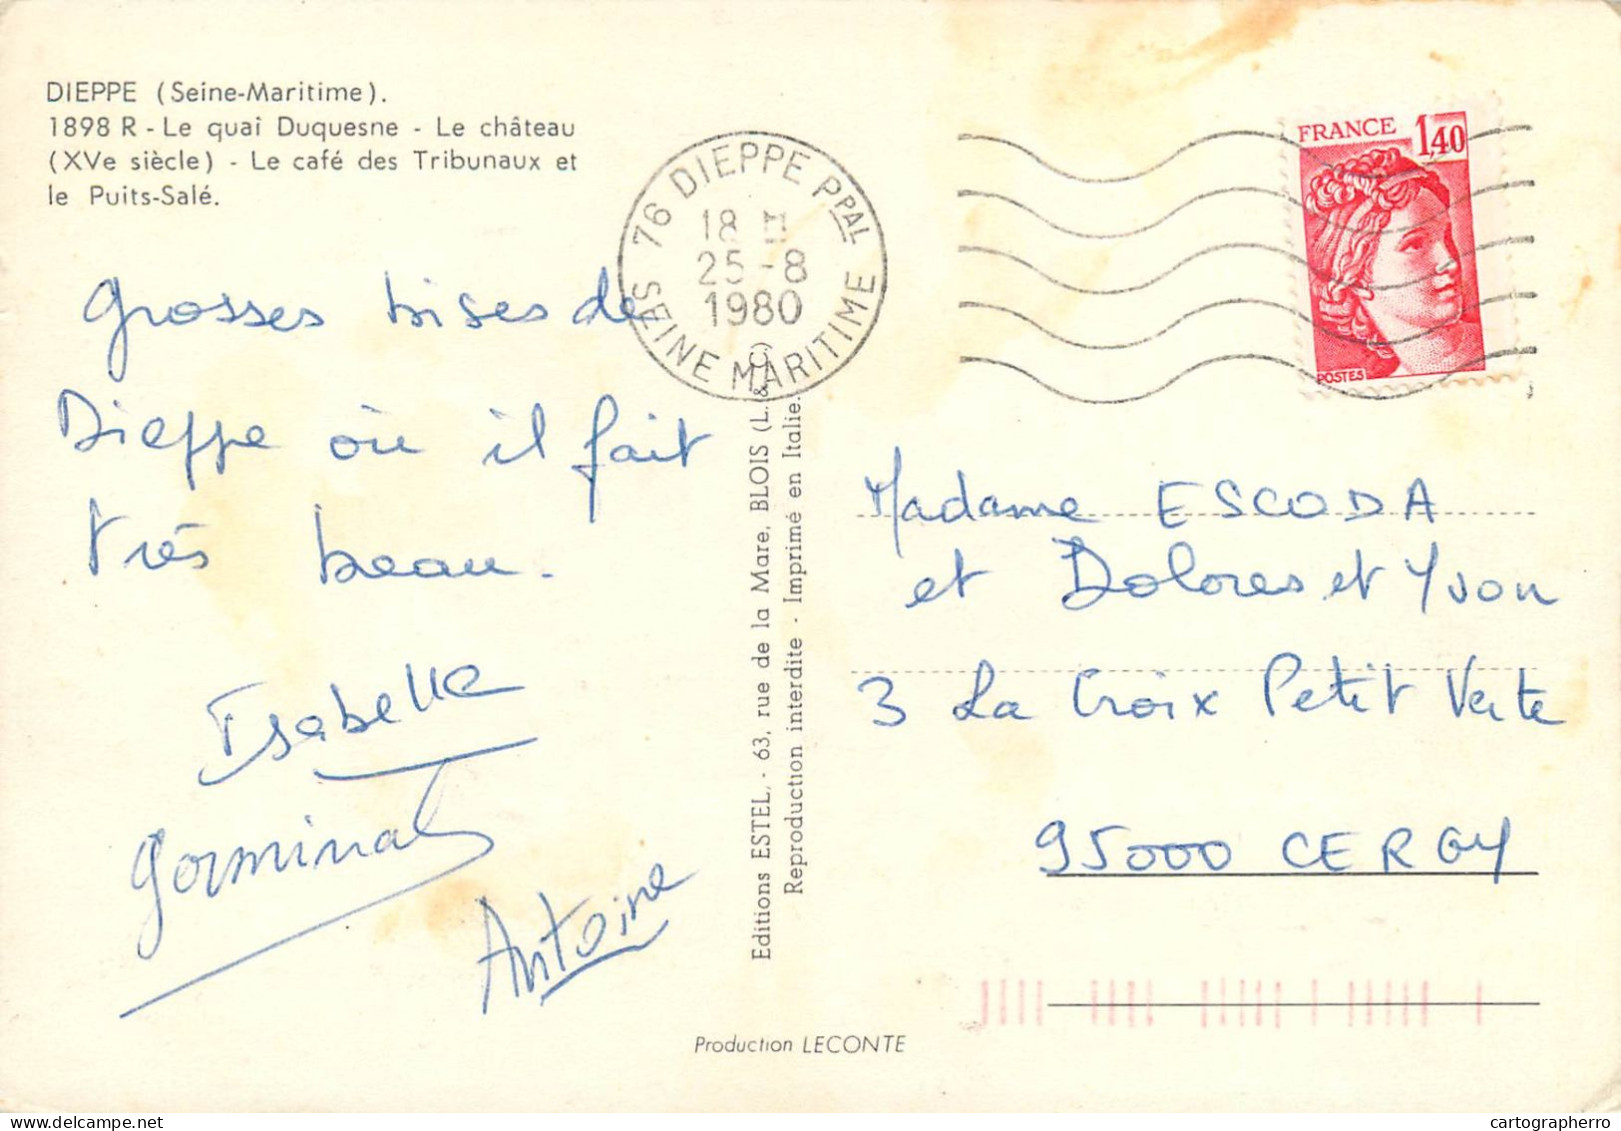 DIEPPE (Seine-Maritime).
1898 R - Le quai Duquesne - Le château
(XVe siècle) - Le café des Tribunaux et
le Puits-Salé.
76 DIEPPE PPAL
18 H
25-8
1980
SEINE MARITIME
FRANCE 1,40
POSTES
Grosses bises de
Dieppe où il fait
très beau.
Isabelle
Germinal
Antoine
Editions ESTEL, - 63, rue de la Mare, BLOIS (L. & C.)
Reproduction interdite - Imprimé en Italie.
Madame ESCODA
et Dolores et Yvon
3 La Croix Petit Verte
95000 CERGY
Production LECONTE
cartographerro